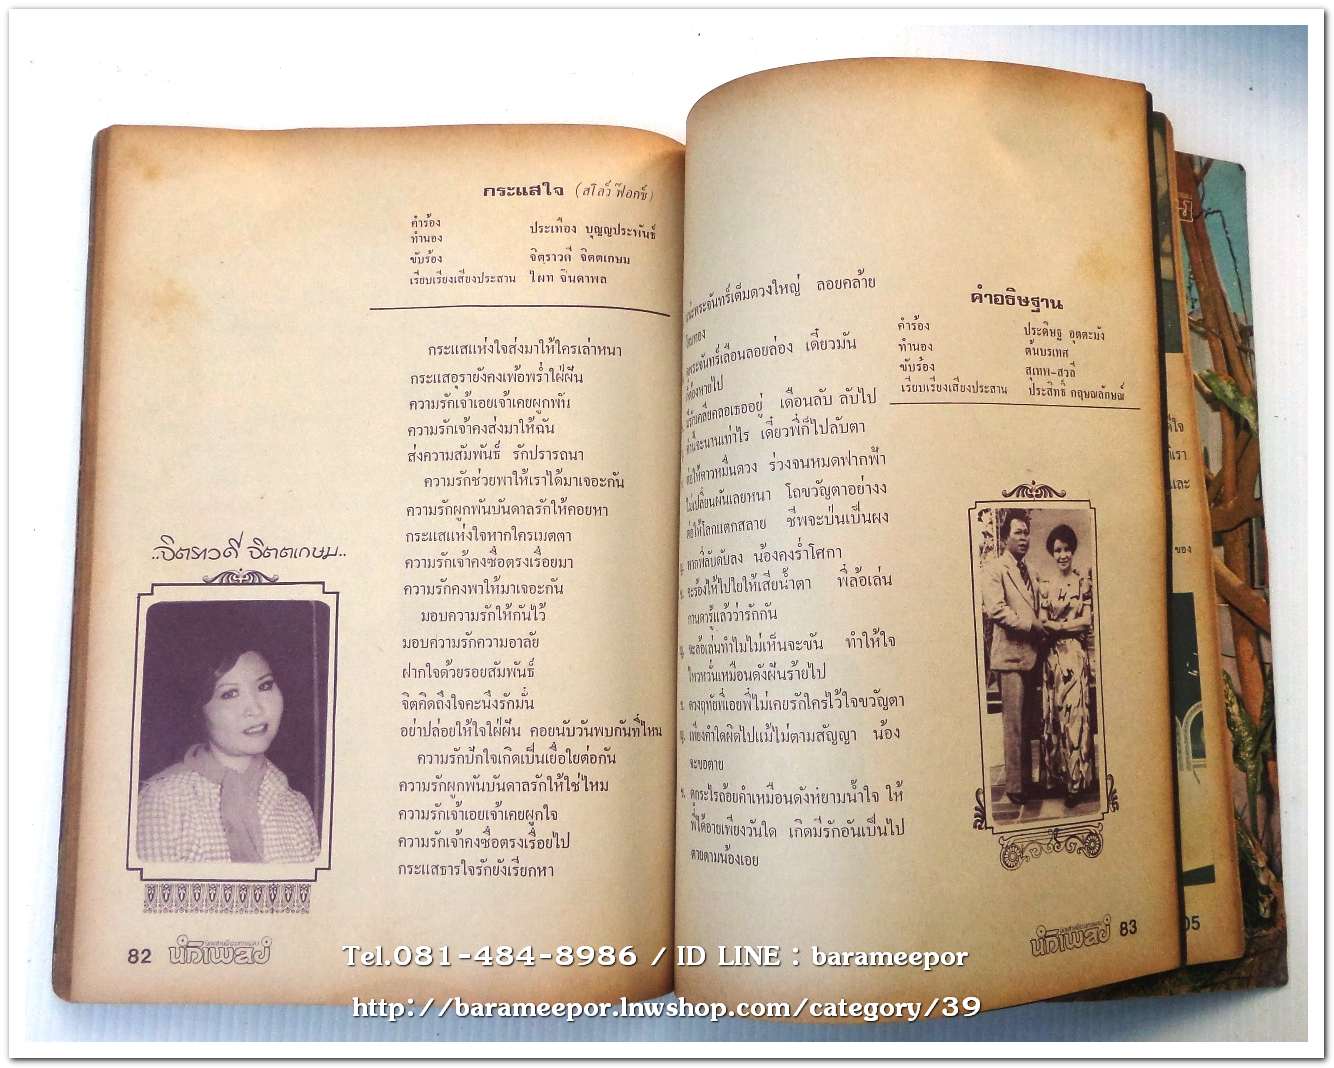 กระแสใจ (สโลว์ ฟ๊อกซ์)
คำร้อง
ทำนอง ประเทือง บุญญประพันธ์
ขับร้อง จิตราวดี จิตตเกษม
เรียบเรียงเสียงประสาน ไผท จินดาพล
กระแสแห่งใจส่งมาให้ใครเล่าหนา
กระแสอุรายังคงเพ้อพร่ำใฝ่ฝัน
ความรักเจ้าเอยเจ้าเคยผูกพัน
ความรักเจ้าคงส่งมาให้ฉัน
ส่งความสัมพันธ์ รักปรารถนา
ความรักช่วยพาให้เราได้มาเจอะกัน
ความรักผูกพันบันดาลรักให้คอยหา
กระแสแห่งใจหากใครเมตตา
ความรักเจ้าคงซื่อตรงเรื่อยมา
ความรักคงพาให้มาเจอะกัน
มอบความรักให้กันไว้
มอบความรักความอาลัย
ฝากใจด้วยรอยสัมพันธ์
จิตคิดถึงใจคะนึงรักมั่น
อย่าปล่อยให้ใจใฝ่ฝัน คอยนับวันพบกันที่ไหน
ความรักปักใจเกิดเป็นเยื่อใยต่อกัน
ความรักผูกพันบันดาลรักให้ใช่ไหม
ความรักเจ้าเอยเจ้าเคยผูกใจ
ความรักเจ้าคงซื่อตรงเรื่อยไป
กระแสธารใจรักยังเรียกหา
..จิตราวดี จิตตเกษม..
82 นักเพลง
พระจันทร์เต็มดวงใหญ่ ลอยคล้าย
พระจันทร์เลื่อนลอยล่อง เดี๋ยวมัน
ก็ต้องหายไป
เคลียคลอเธออยู่ เดือนลับ ลับไป
จะนานเท่าไร เดี๋ยวพี่ก็ไปลับตา
ให้ดาวหมื่นดวง ร่วงจนหมดฟากฟ้า
ไม่เปลี่ยนผันเลยหนา โถขวัญตาอย่างง
ต่อให้โลกแตกสลาย ชีพจะป่นเป็นผง
หากพี่ลับดับลง น้องคงร่ำโศกา
จะร้องให้ไปใยให้เสียน้ำตา พี่ล้อเล่น
กานดารู้แล้วว่ารักกัน
ญ. จะล้อเล่นทำไมไม่เห็นจะขัน ทำให้ใจ
ไหวหวั่นเหมือนดังฝันร้ายไป
ช. ดวงฤทัยพี่เอยพี่ไม่เคยรักใครไว้ใจขวัญตา
ญ. เพียงคำใดผิดไปแม้ไม่ตามสัญญา น้อง
จะขอตาย
ช. ตกระไรถ้อยคำเหมือนดังห่ยามน้ำใจ ให้
พี่ได้อายเพียงวันใด เกิดมีรักอันเป็นไป
ตายตามน้องเอย
คำอธิษฐาน
คำร้อง ประดิษฐ อุตตะมัง
ทำนอง ต้นบรเทศ
ขับร้อง สุเทพ-สวลี
เรียบเรียงเสียงประสาน ประสิทธิ์ กฤษณลักษณ์
นักเพลง 83
05
Tel.081-484-8986 / ID LINE : barameepor
http://barameepor.lnwshop.com/category/39